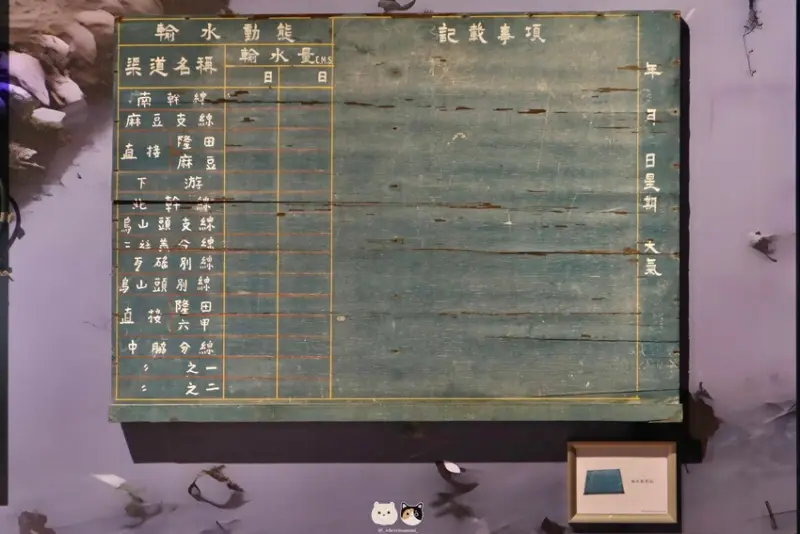 輸水動態
記載事項
渠道名稱
輸水量C.M.S
日 日
南幹線
麻豆支線
直接 隆田
麻豆
下游
北幹線
烏山頭支線
二 線
別線
烏山頭別線
直接 隆田
六甲
中 分線
〃 之一
〃 之二
年 月 日 星期 天氣